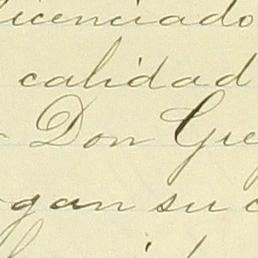 licenciado
calidad
Don Gre
gan su c